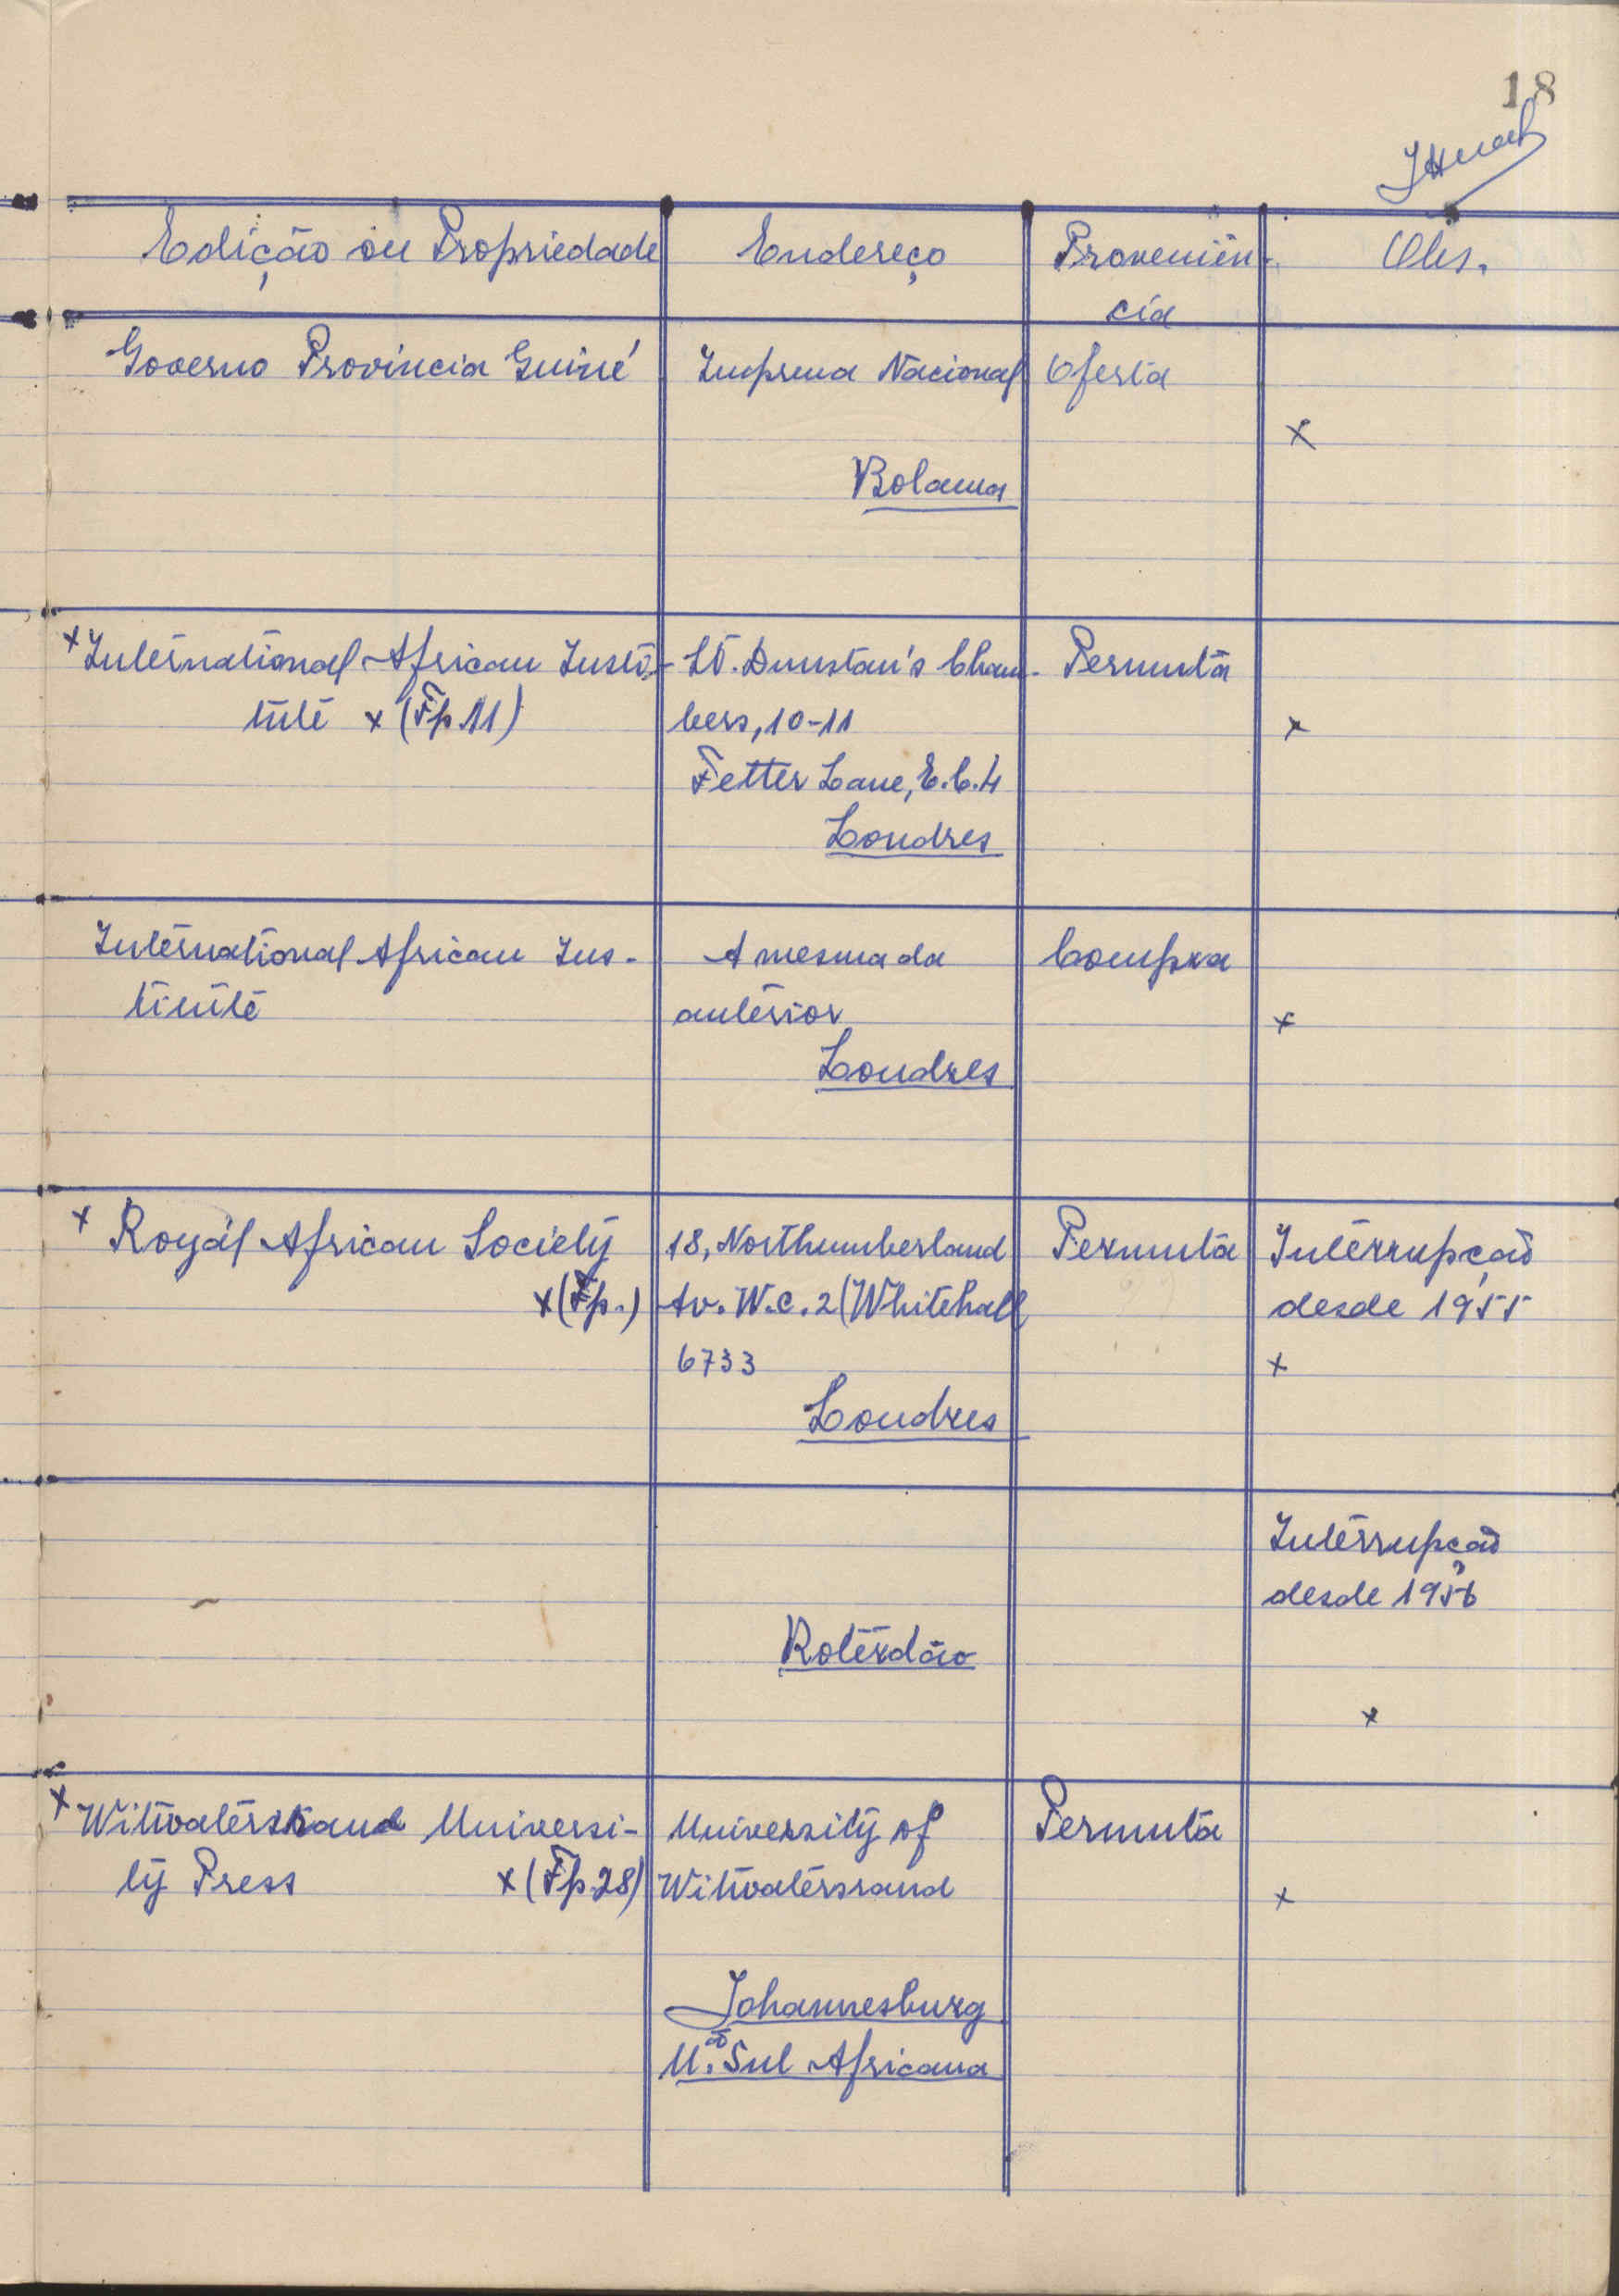 18
Edição ou Propriedade Endereço Proveniên- Obs.
cia
Governo Província Guiné Imprensa Nacional Oferta
x
Bolama
x International African Insti- St. Dunstan's Cham- Permuta
tute x (Fp. 11) bers, 10-11 x
Fetter Lane, E.C.4
Londres
International African Ins- A mesma da Compra
titute anterior x
Londres
x Royal African Society 18, Northumberland Permuta Interrupção
x (Fp.) Av. W.C.2 (Whitehall desde 1955
6733 x
Londres
Interrupção
desde 1956
Roterdão
x
x Witwatersrand Universi- University of Permuta
ty Press x (Fp. 28) Witwatersrand x
Johannesburg
U. ão Sul Africana